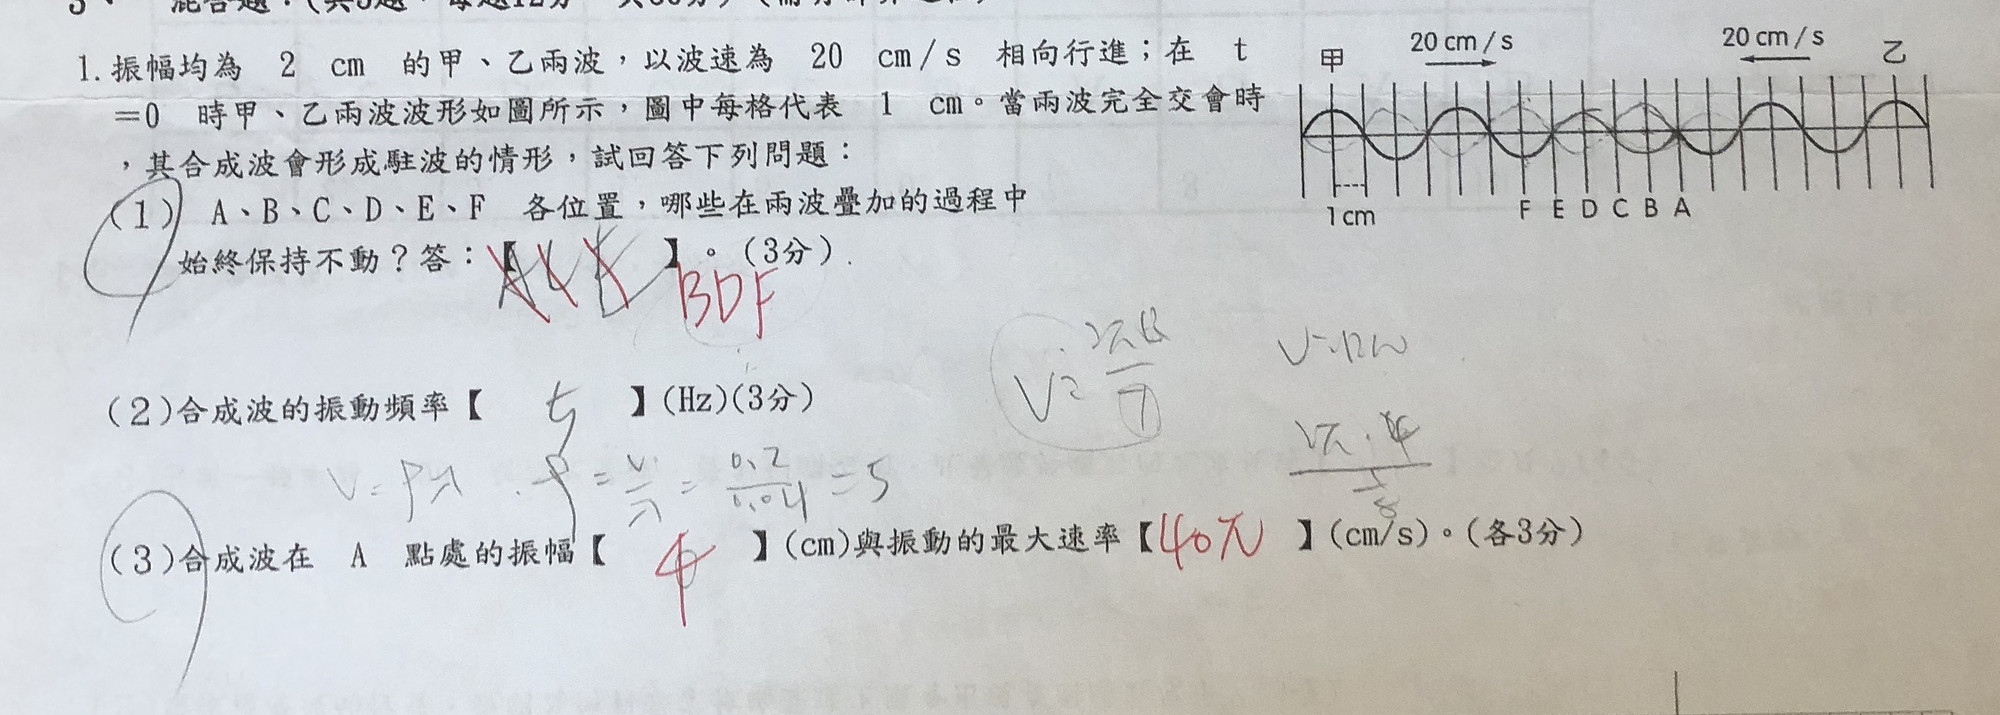 1. 振幅均為 2 cm 的甲、乙兩波，以波速為 20 cm/s 相向行進；在 t
=0 時甲、乙兩波波形如圖所示，圖中每格代表 1 cm。當兩波完全交會時
，其合成波會形成駐波的情形，試回答下列問題：
甲 20 cm/s 20 cm/s 乙
1 cm F E D C B A
(1) A、B、C、D、E、F 各位置，哪些在兩波疊加的過程中
始終保持不動？答：【ACE】。(3分)
BDF
(2)合成波的振動頻率【 5 】(Hz)(3分)
V=fλ f=V/λ=0.2/0.04=5
(3)合成波在 A 點處的振幅【 4 】(cm)與振動的最大速率【40π】(cm/s)。(各3分)